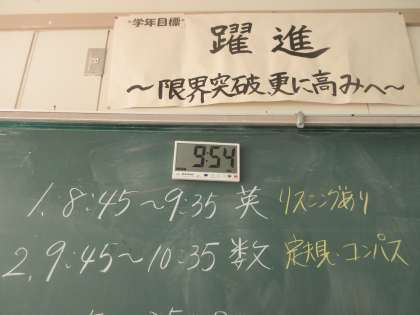 学年目標
躍進
～限界突破、更に高みへ～
9:54
1. 8:45～9:35 英 リスニングあり
2. 9:45～10:35 数 定規・コンパス